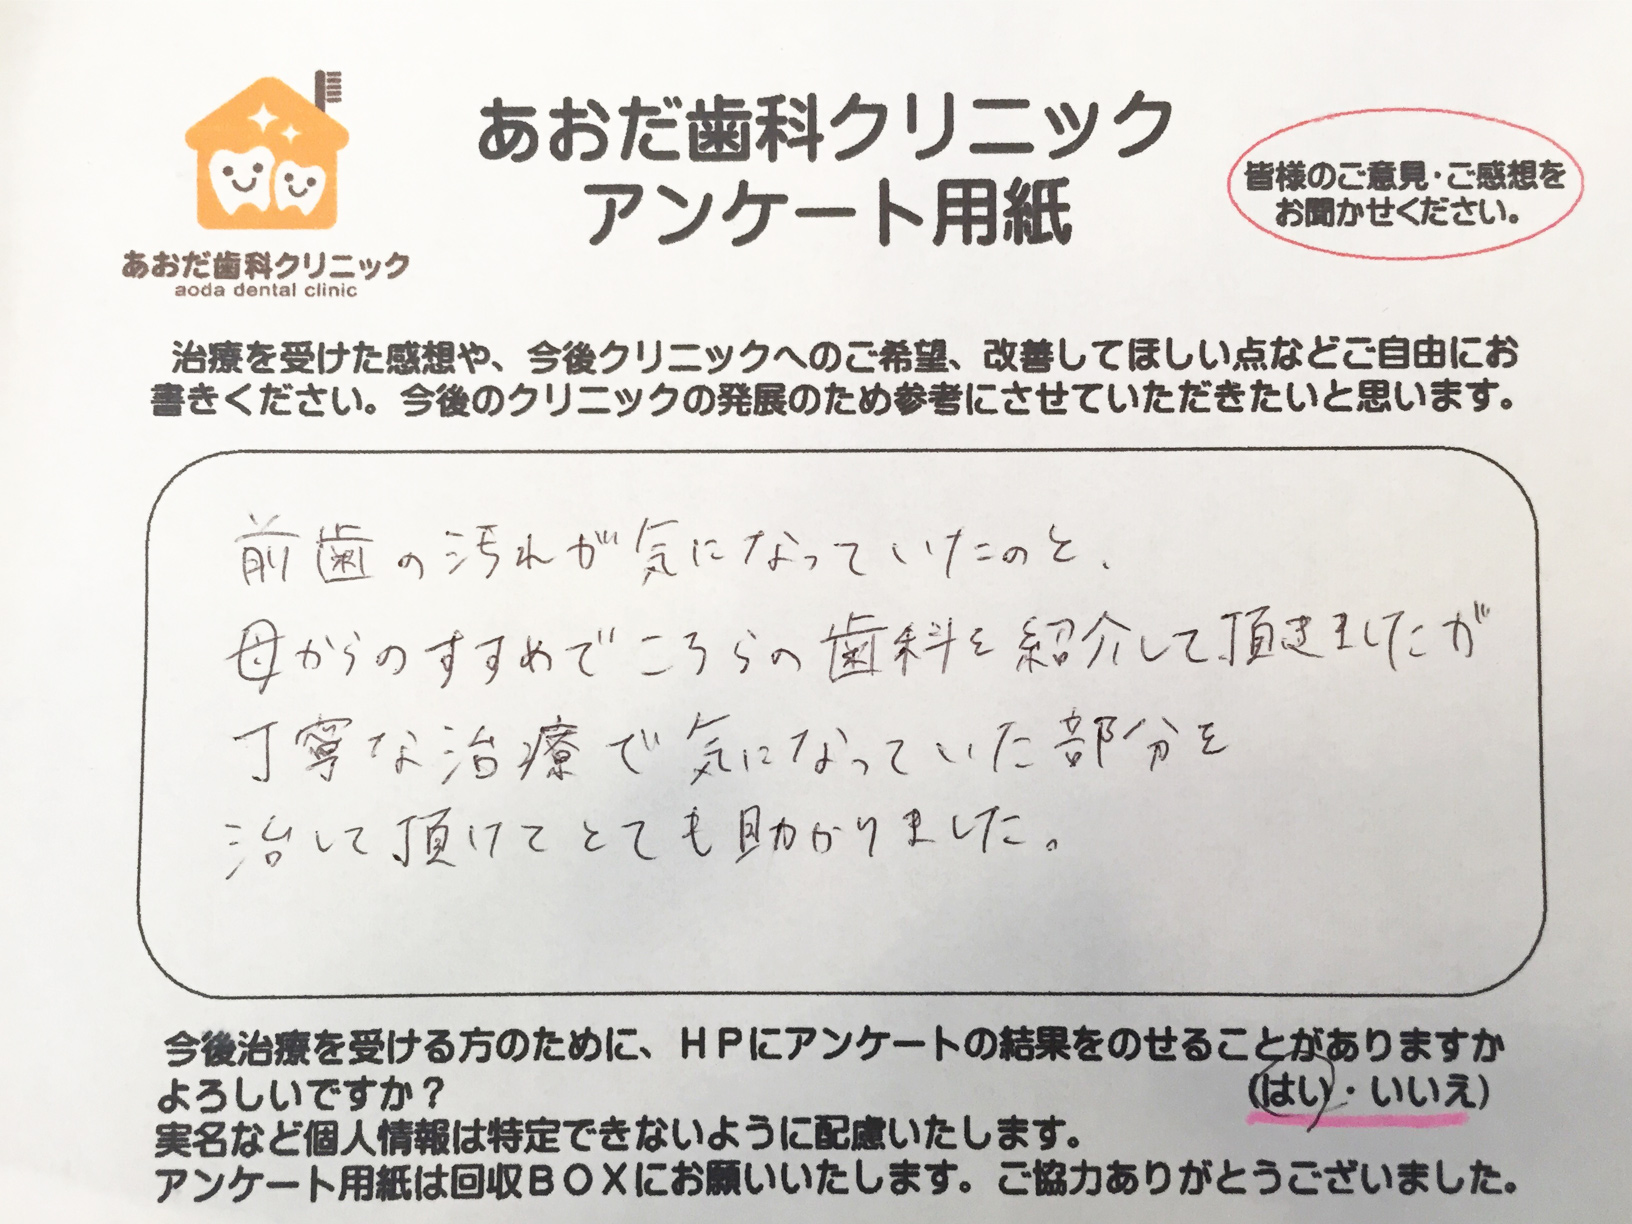 あおだ歯科クリニック
アンケート用紙
皆様のご意見・ご感想を
お聞かせください。
あおだ歯科クリニック
aoda dental clinic
治療を受けた感想や、今後クリニックへのご希望、改善してほしい点などご自由にお
書きください。今後のクリニックの発展のため参考にさせていただきたいと思います。
前歯の汚れが気になっていたのと、
母からのすすめでこちらの歯科を紹介して頂きましたが
丁寧な治療で気になっていた部分を
治して頂けてとても助かりました。
今後治療を受ける方のために、HPにアンケートの結果をのせることがありますか
よろしいですか？ (はい・いいえ)
実名など個人情報は特定できないように配慮いたします。
アンケート用紙は回収BOXにお願いいたします。ご協力ありがとうございました。